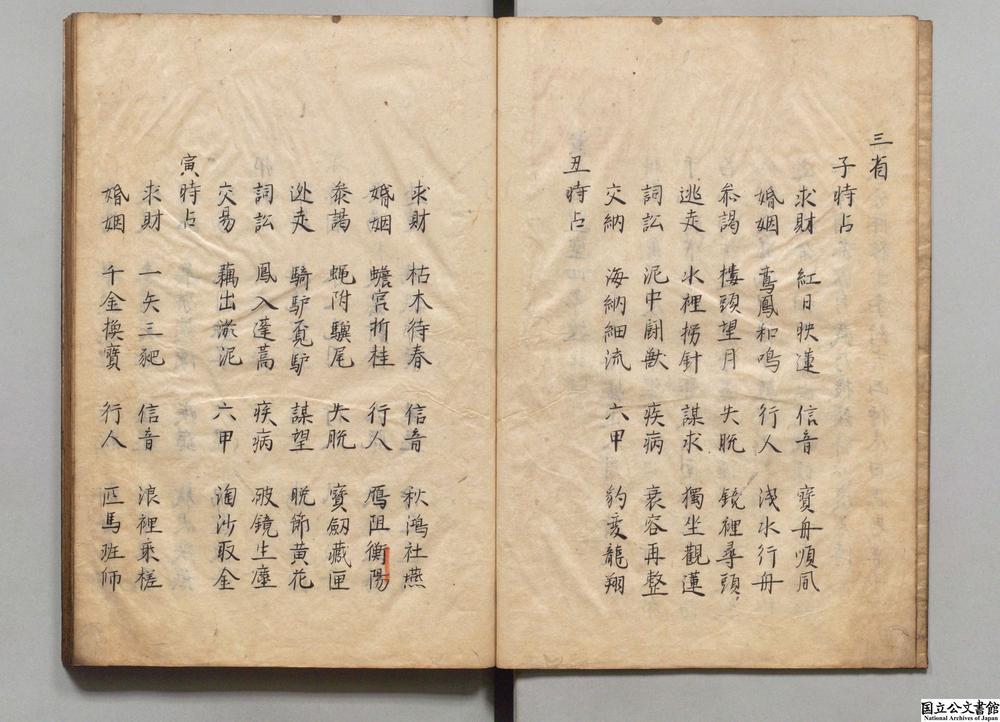 三省
子時占
求財 紅日映蓮 信音 寶舟順風
婚姻 鸞鳳和鳴 行人 浅水行舟
叅謁 樓頭望月 失脱 鏡裡尋頭
逃走 水裡撈針 謀求 獨坐觀蓮
詞訟 泥中鬪獣 疾病 衰容再整
交納 海納細流 六甲 豹变龍翔
丑時占
求財 枯木待春 信音 秋鴻社燕
婚姻 蟾宮折桂 行人 鴈阻衡陽
叅謁 蝇附驥尾 失脱 寳劔藏匣
逃走 騎馿覔馿 謀望 晚節黄花
詞訟 鳳入蓬蒿 疾病 破鏡生塵
交易 藕出淤泥 六甲 淘沙取金
寅時占
求財 一矢三豝 信音 浪裡乘槎
婚姻 千金換寶 行人 匹馬班師
国立公文書館
National Archives of Japan